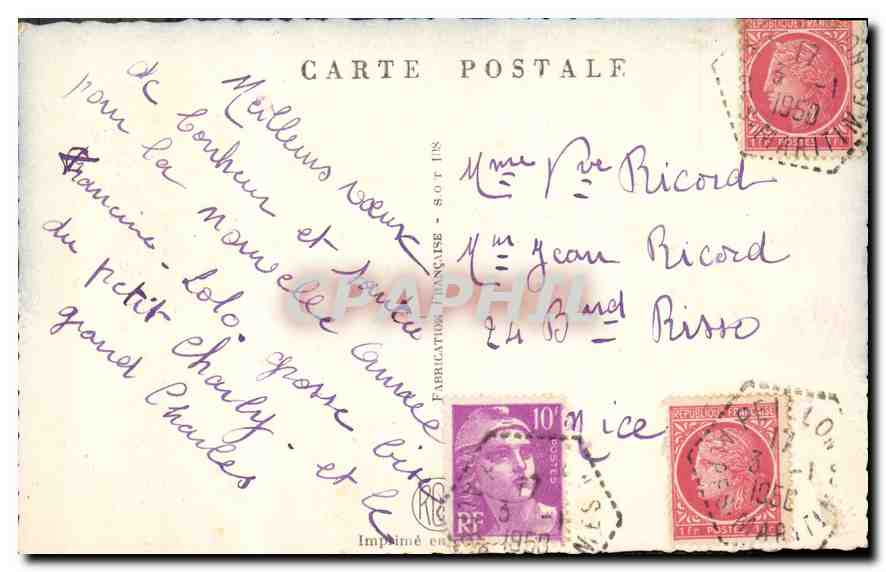 CARTE POSTALE
Meilleurs vœux
de bonheur et santée
pour la nouvelle année
Francine. Lolo. grosse bise
du petit Charly. et le
grand Charles
Mme Vve Ricord
Mr Jean Ricord
24 Bard Risso
Nice
FABRICATION FRANÇAISE - S.O.T 108
Imprimé en
REPUBLIQUE FRANÇAISE
1 Fr POSTES
17
3 -1
1950
MARITIMES
10F
POSTES
RF
17
3 -1
1950
MES
REPUBLIQUE FRANÇAISE
1 Fr POSTES
17
3 -1
1950
MARITIM
CPAPHIL